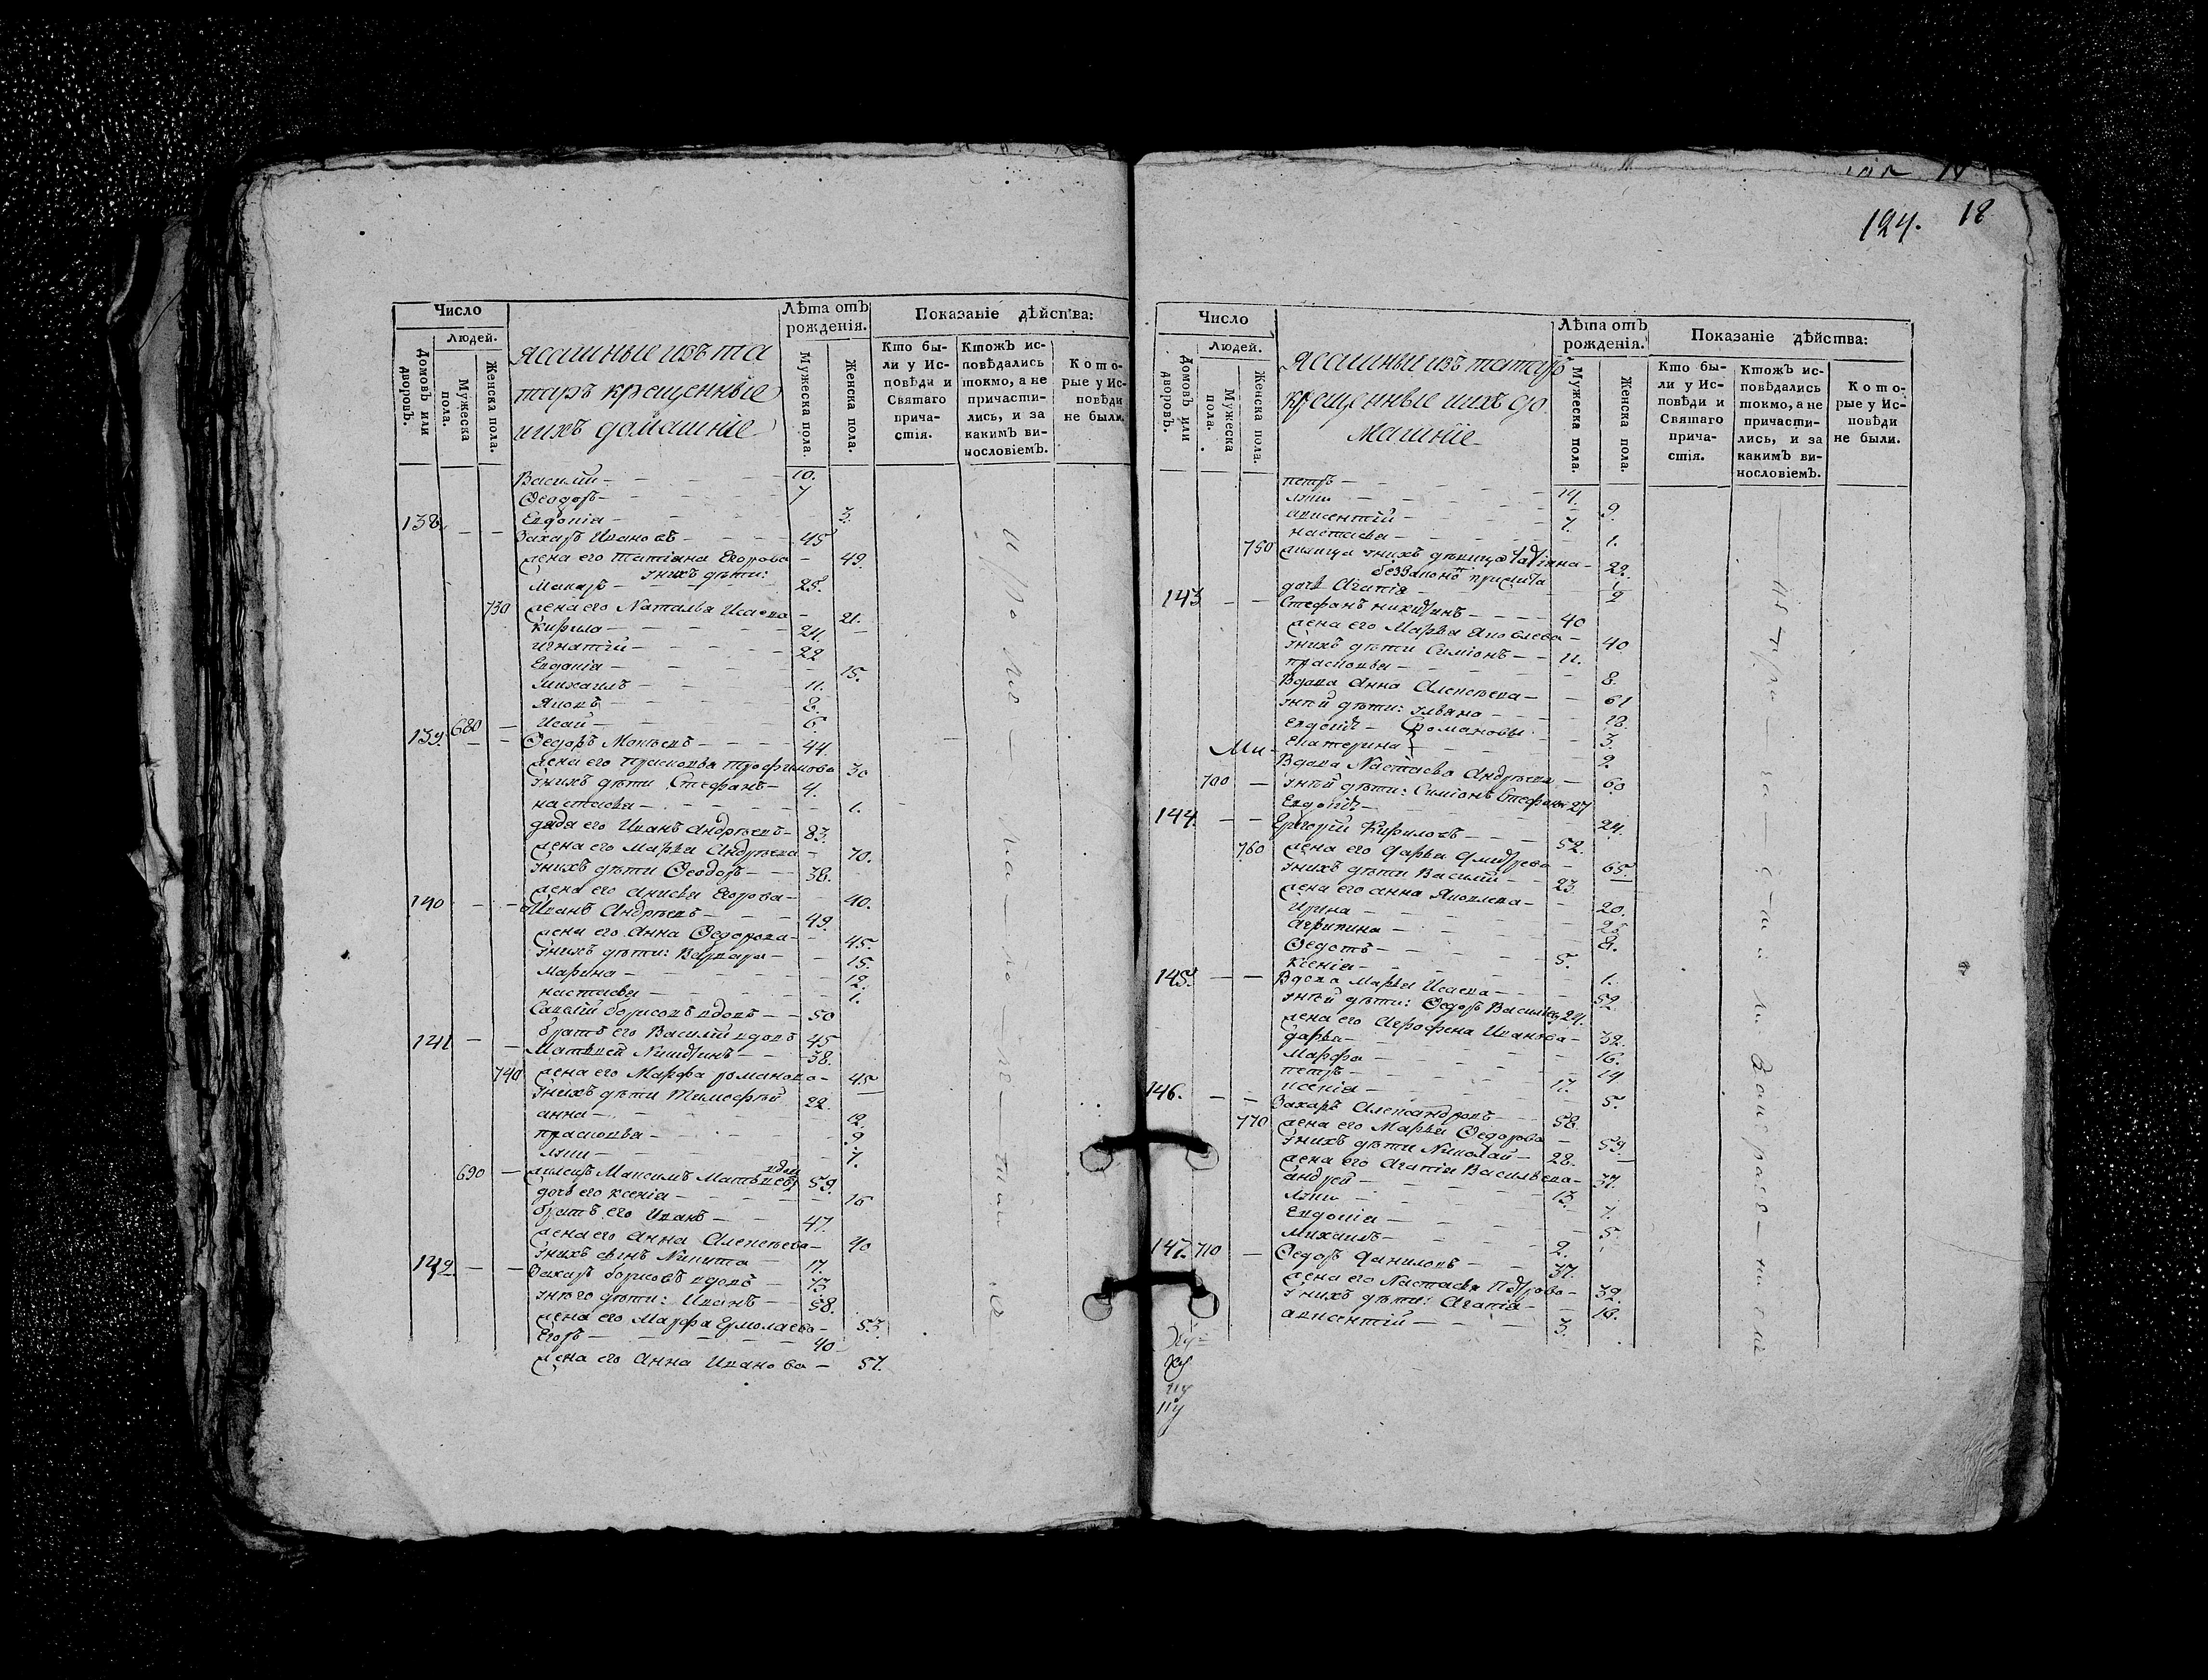 124. 18
Число
Людей.
Домовъ или дворовъ.
Мужеска пола.
Женска пола.
Ясашные изъ та
таръ крещенные
ихъ домашніе
Лѣта отъ рожденія.
Мужеска пола.
Женска пола.
Показаніе дѣйства:
Кто бы-
ли у Ис-
повѣди и
Святаго
прича-
стія.
Ктожъ ис-
повѣдались
токмо, а не
причасти-
лись, и за
какимъ ви-
нословіемъ.
Кото-
рые у Ис-
повѣди
не были.
Василий — 10.
Ѳеодоръ — 7
Евдокіа — 3.
138. — — Захаръ Ивановъ — 45
жена его Татіана Егорова — 49.
у нихъ дѣти:
Макаръ — 25.
730 жена его Наталья Исаева — 21.
Кирила — 24.
Игнатій — 22
Евдокіа — 15.
Михаилъ — 11.
Яковъ — 8.
680 — Исай — 6.
139. — — Ѳедоръ Мокѣевъ — 44.
жена его Прасковья Трофимова 30
у нихъ дѣти Стефанъ — 4.
настасья — 1.
дядя его Иванъ Андрѣевъ — 83.
жена его Марья Андрѣева — 70.
у нихъ дѣти Ѳеодоръ — 38.
жена его Анисья Егорова — 40.
140 — — Иванъ Андрѣевъ — 49.
жена его Анна Ѳедорова — 45.
у нихъ дѣти: Варвара — 15.
Марина — 12.
настасья — 1.
Савелій борисовъ вдовъ — 50
братъ его Василій вдовъ 45
141 — — Матвей Никитинъ — 38.
740 жена его Марфа романова — 45
у нихъ дѣти Тимофѣй 22.
анна — 12.
прасковья — 9.
— 7.
690 — Максимъ Матвеевъ вдовъ 59.
дочь его ксенія — 16
братъ его Иванъ — 47.
жена его Анна Алексѣева — 40
у нихъ сынъ Никита — 17.
142. — — Захаръ борисовъ вдовъ — 73
у него дѣти: Иванъ — 58.
жена его Марфа Ермолаева — 53.
Егоръ — 40
жена его Анна Иванова — 57.
Число
Людей.
Домовъ или дворовъ.
Мужеска пола.
Женска пола.
Ясашныи изъ татаръ
крещенные ихъ до
машніе
Лѣта отъ рожденія.
Мужеска пола.
Женска пола.
Показаніе дѣйства:
Кто бы-
ли у Ис-
повѣди и
Святаго
прича-
стія.
Ктожъ ис-
повѣдались
токмо, а не
причасти-
лись, и за
какимъ ви-
нословіемъ.
Кото-
рые у Ис-
повѣди
не были.
петръ — 14.
— 9.
авксентій — 7.
настасья — 1.
750 у нихъ дѣвица Татіана — 22.
дочь Агапія — 2
143 — — Стефанъ никитинъ — 40
жена его Марья Яковлева — 40
у нихъ дѣти Симіонъ — 11.
прасковья — 8.
Вдова Анна Алексѣева — 61
у ней дѣти: ульяна — 18.
Евдокія — романовы 3.
Екатерина — 2.
Вдова Настасья Андрѣева — 60
700 — у ней дѣти: Симіонъ Стефановъ 27
Евдокія — 24.
144. — — Григорій Кириловъ — 52.
760 жена его дарья дмитрева — 65.
у нихъ дѣти Василій — 23.
жена его анна Яковлева — 20.
Ирина — 25
Агрипина — 8.
Ѳедотъ — 5.
Ксенія — 1.
145. — — Вдова Марья Исаева — 52.
у ней дѣти: Ѳедоръ Васильевъ 24.
жена его Агрофена Иванова — 32.
дарья — 16.
Марфа — 14
петръ — 17.
ксенія — 5.
146. — — Захаръ Александровъ — 58.
770 жена его Марья Ѳедорова — 59.
у нихъ дѣти Николай — 28.
жена его Агапія Васильева — 37.
андрей — 13.
— 7.
Евдокіа — 5.
Михаилъ — 2.
147. 710 — Ѳедоръ даниловъ — 37.
жена его Настасья Петрова — 32.
у нихъ дѣти: Агапіа — 18.
авксентій — 3.